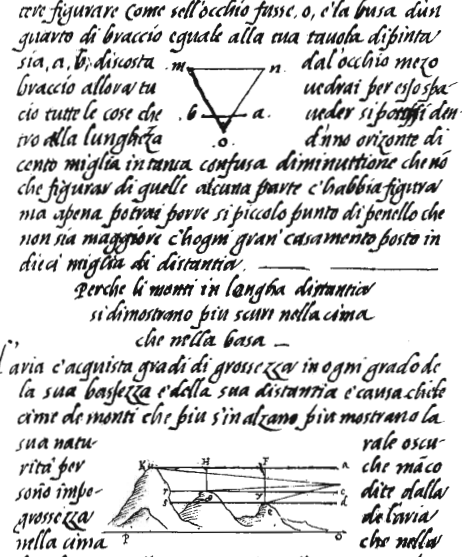 tere figurare come sell'occhio fusse. o, e la busa d'un
quarto di braccio equale alla tua tauola dipinta
sia, a, b, discosta m n. dal'occhio mezo
braccio allora tu uedrai per esso spa-
cio tutte le cose che b a. ueder si possi den-
tro alla lungheza o d'uno orizonte di
cento miglia in tanta confusa diminuttione che nō
che figurar di quelle alcuna parte c'habbia figura
ma apena potrai porre si piccolo punto di penello che
non sia maggiore c'hogni gran' casamento posto in
dieci miglia di distantia.
Perche li monti in longha distantia
si dimostrano piu scuri nella cima
che nella basa
L'aria c'acquista gradi di grossezza in ogni grado de
la sua bassezza e della sua distantia e causa che le
cime de monti che piu s'inalzano piu mostrano la
sua natu- rale oscu-
rita per K H F a che māco
sono impe- r c dite dalla
grossezza s d de l'aria
nella cima P o che nella